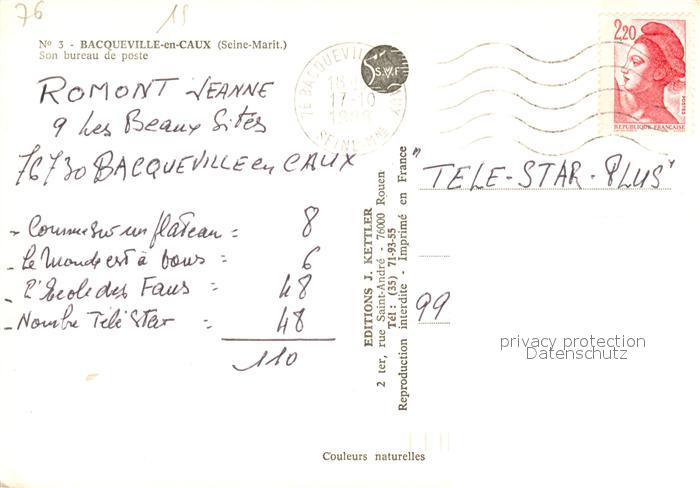 76
15
Nº 3 - BACQUEVILLE-en-CAUX (Seine-Marit.)
Son bureau de poste
ROMONT JEANNE
9 Les Beaux Sites
76730 BACQUEVILLE en CAUX
- Comme sur un plateau = 8
- Le Monde est à vous = 6
- L'Ecole des Fans = 48
- Nombre Télé Star = 48
110
17-10
SEINE MME
2,20
POSTES
REPUBLIQUE FRANÇAISE
EDITIONS J. KETTLER
2 ter, rue Saint-André - 76000 Rouen
Tél : (35) 71-93-55
Reproduction interdite - Imprimé en France
"TELE-STAR-PLUS"
99
privacy protection
Datenschutz
Couleurs naturelles